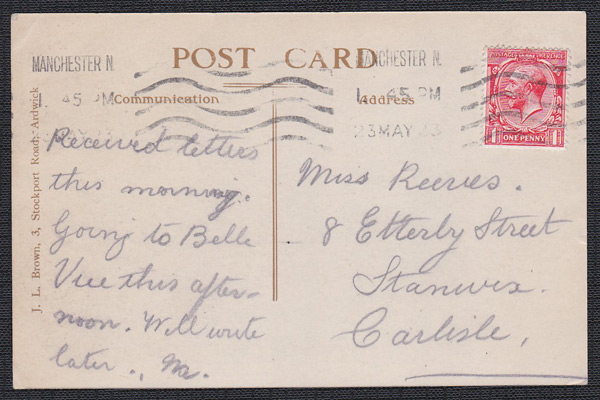 POST CARD
MANCHESTER N.
1. 45 PM
MAY
MANCHESTER N.
1. 45 PM
23 MAY 23
Communication
Address
POSTAGE
ONE PENNY
J. L. Brown, 3, Stockport Road, Ardwick
Received letters
this morning.
Going to Belle
Vue this after-
noon. Will write
later.
Miss Reeves.
8 Etterby Street
Stanwix.
Carlisle,